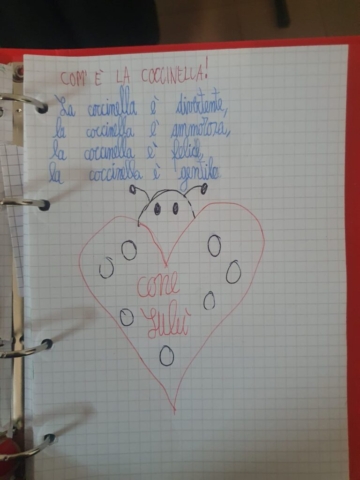 COM' È LA COCCINELLA!
La coccinella è divertente,
la coccinella è ammorosa,
la coccinella è felice,
la coccinella è gentile
come
Lulù